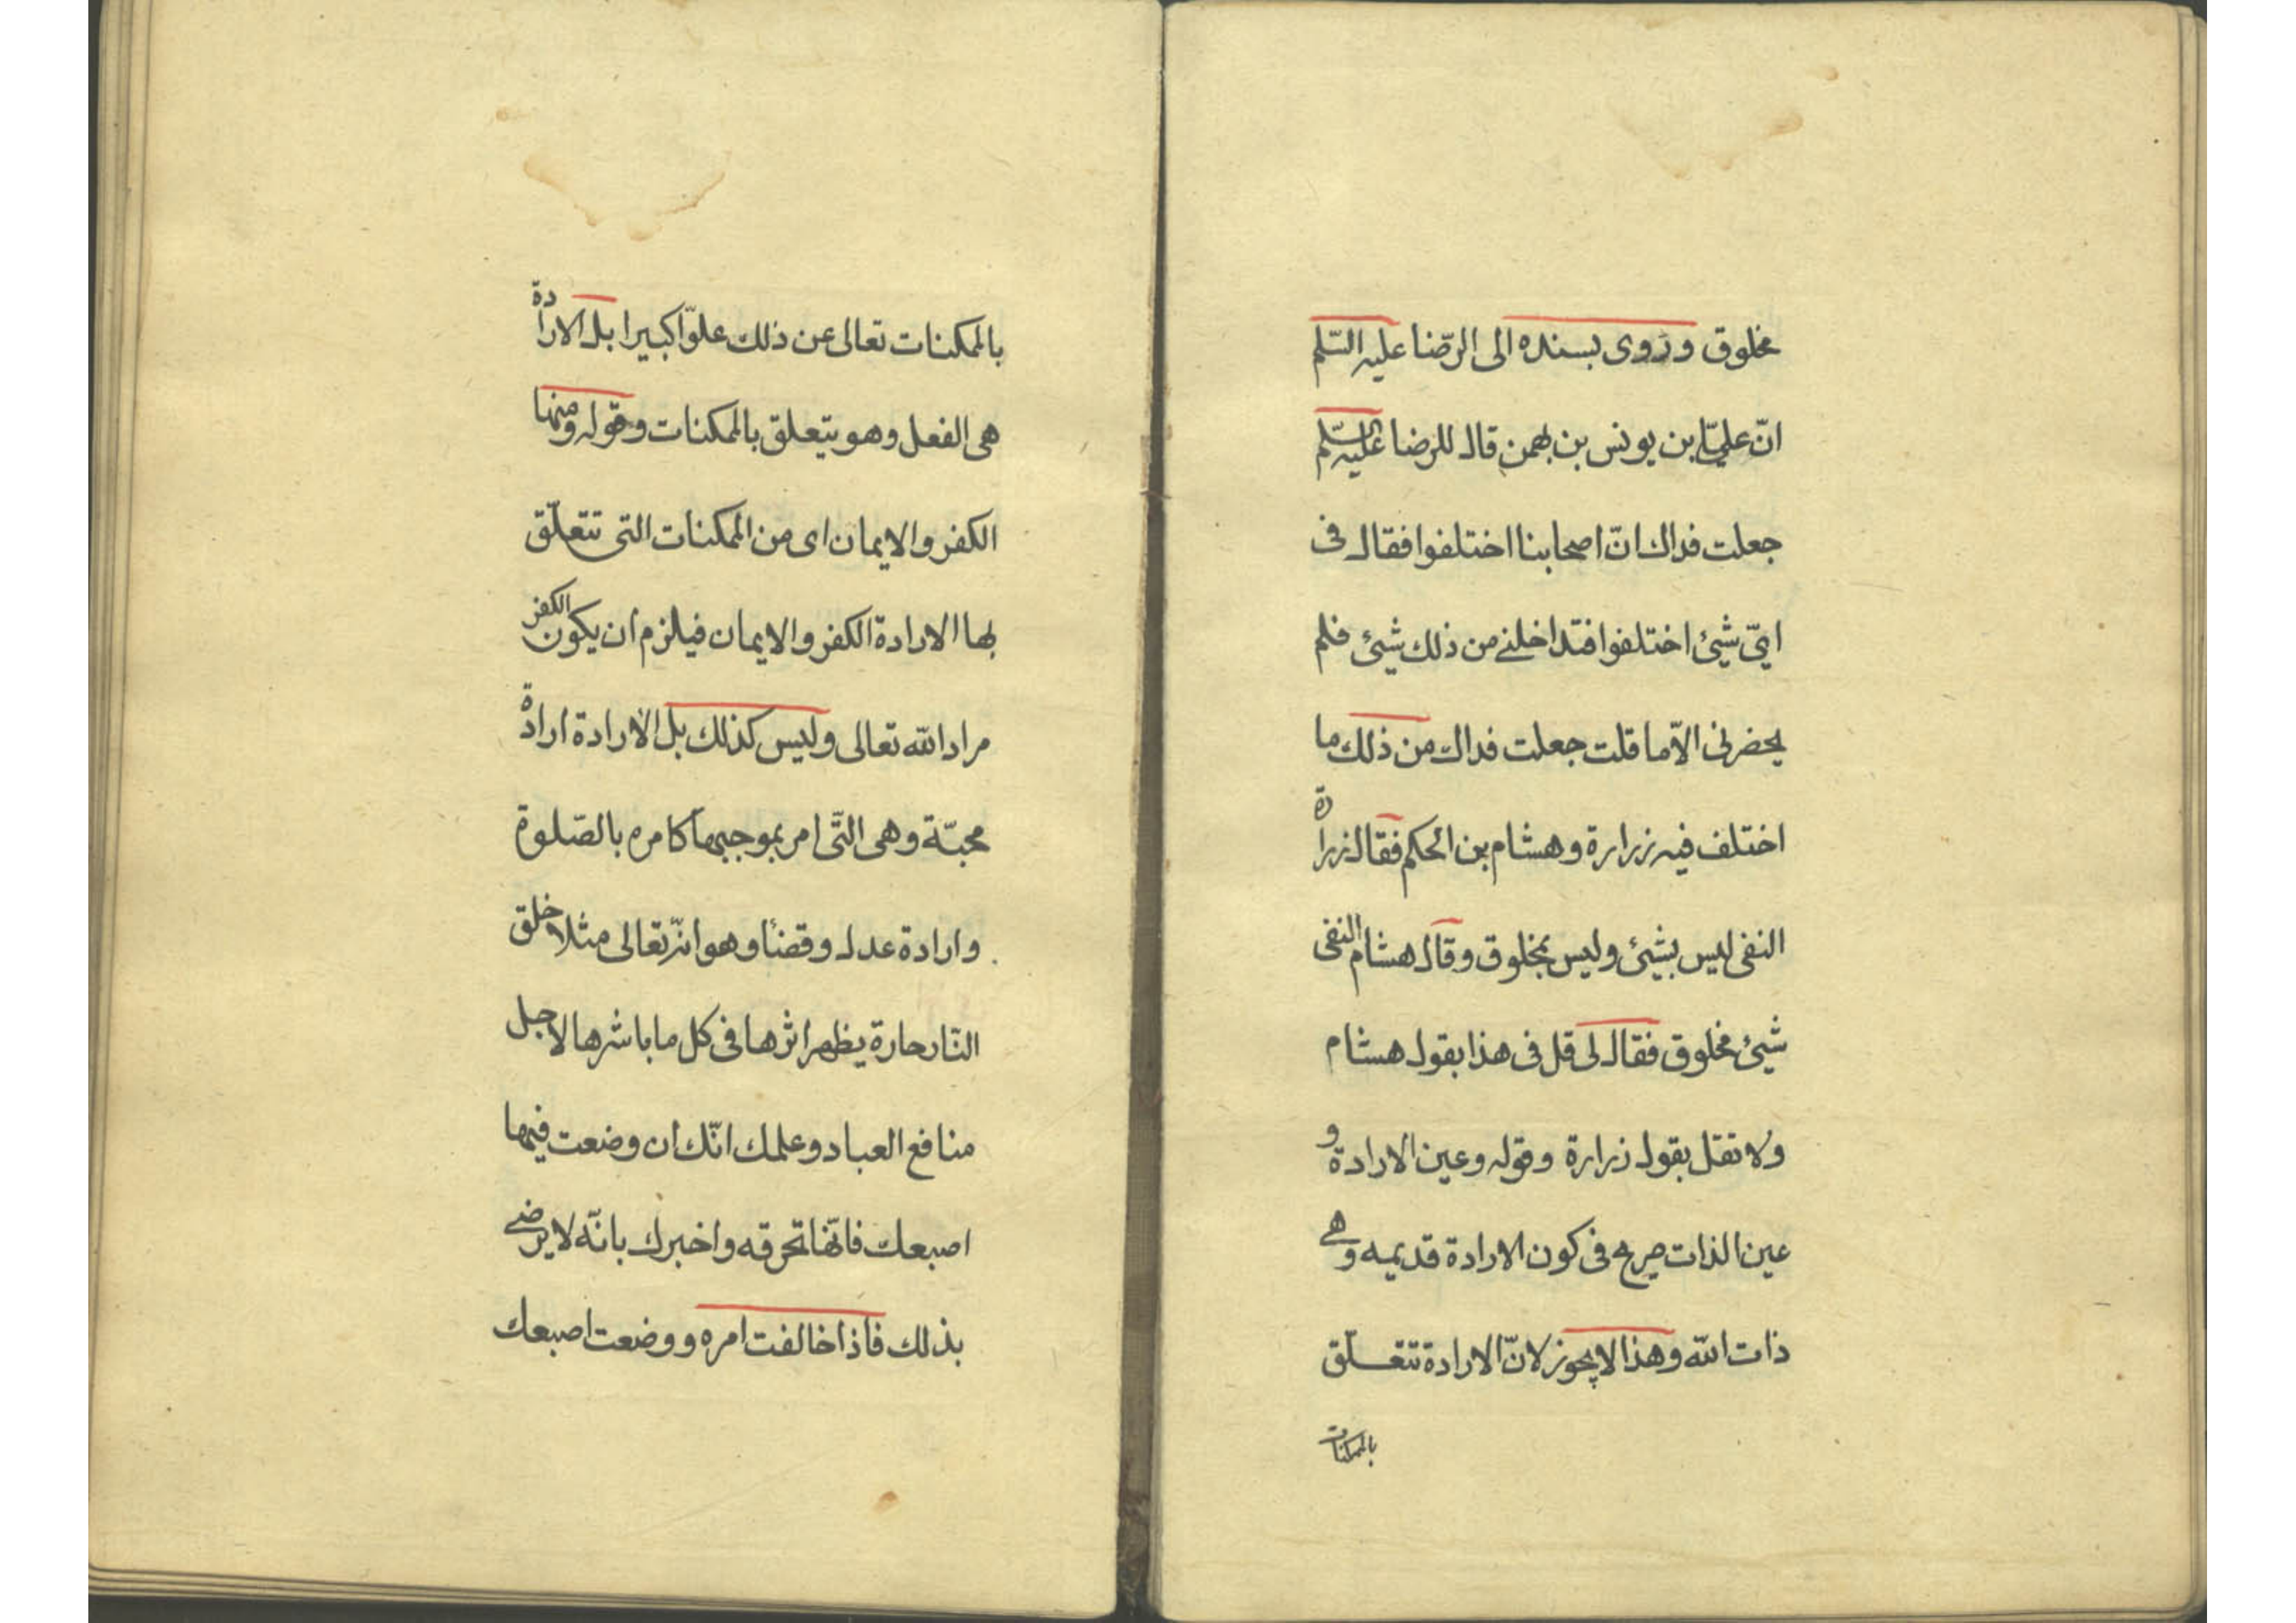 مخلوق وروى بسنده الى الرّضا عليه السّلم
انّ عليّا بن يونس بن بهمن قال للرضا عليه السّلم
جعلت فداك انّ اصحابنا اختلفوا فقال فى
ايّ شيئ اختلفوا فتداخلنے من ذلك شيئ فلم
يحضرنى الاّ ما قلت جعلت فداك من ذلك ما
اختلف فيه زرارة وهشام بن الحكم فقال زرارة
النفى ليس بشيئ وليس بمخلوق وقال هشام النفى
شيئ مخلوق فقال لى قل فى هذا بقول هشام
ولا تقل بقول زرارة وقوله وعين الارادة و
عين الذات صريح فى كون الارادة قديمه وهى
ذات اللّه وهذا لا يجوز لانّ الارادة تتعلّق
بالممكنات
بالممكنات تعالى عن ذلك علوّا كبيرا بل الارادة
هى الفعل وهو يتعلق بالممكنات وقوله ومنها
الكفر والايمان اى من الممكنات التى تتعلّق
بها الارادة الكفر والايمان فيلزم ان يكون الكفر
مراد اللّه تعالى وليس كذلك بل الارادة ارادة
محبّة وهى الّتى امر بموجبها كامره بالصّلوة
وارادة عدل وقضا وهو انّه تعالى مثلا خلق
النّار حارة يظهر اثرها فى كل ما باشرها لاجل
منافع العباد وعلمك انّك ان وضعت فيها
اصبعك فانّها تحرقه واخبرك بانّه لا يرضے
بذلك فاذا خالفت امره ووضعت اصبعك